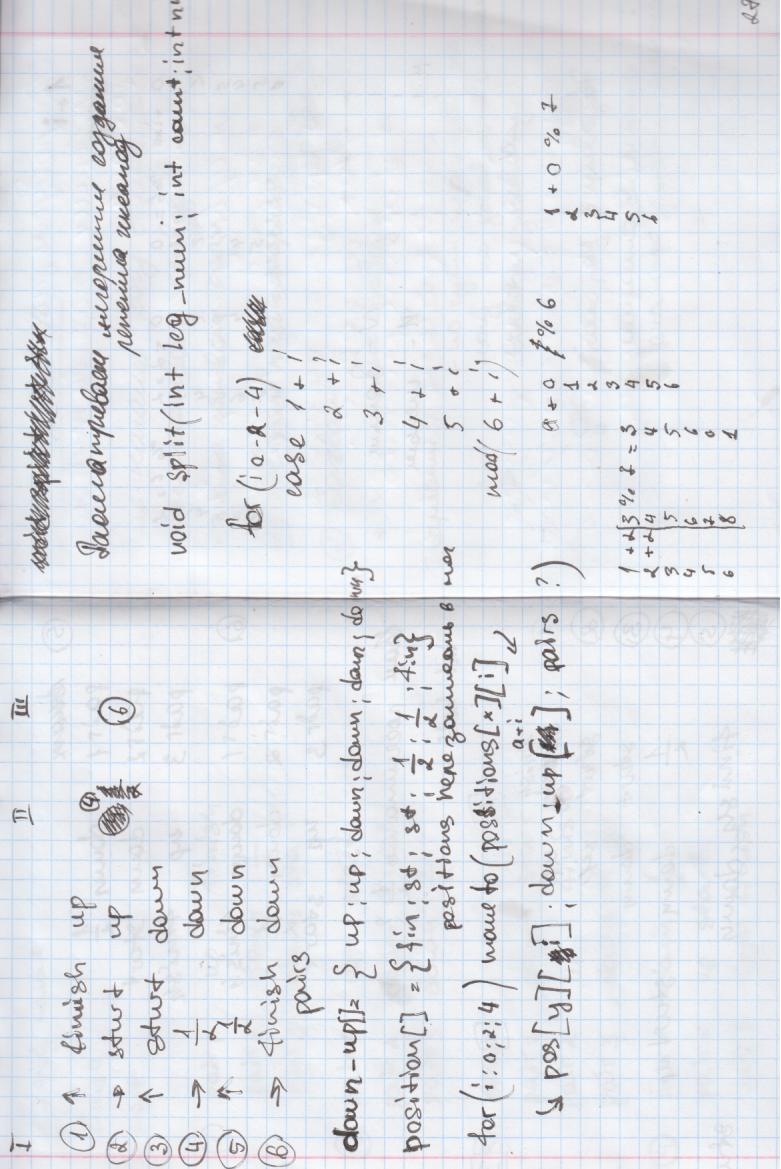 I II III
① ↑ finish up ④ ⑥
② → start up
③ ↑ start down
④ → 1/2 down
⑤ ↑ 1/2 down
⑥ → finish down
pairs
down-up[]= { up; up; down; down; down; down}
position[] = {fin; st; st; 1/2; 1/2; fin}
positions
for (i: 0; 2; 4) move to (positions[x][i]
a+i
↳ pos[y][i]; down-up[]; pairs ?)
Рассматриваем алгоритм создания
void split(int leg_num; int count; int nu
for (i 0-2-4)
case 1 + i
2 + i
3 + i
4 + i
5 + i
mod( 6 + i)
1 +2 3 % 7 = 3
2 +2 4 4
3 5 5
4 6 6
5 7 0
6 8 1
a + 0 % 6
1
2
3
4
5
6
1 + 0 % 7
2
3
4
5
6
27